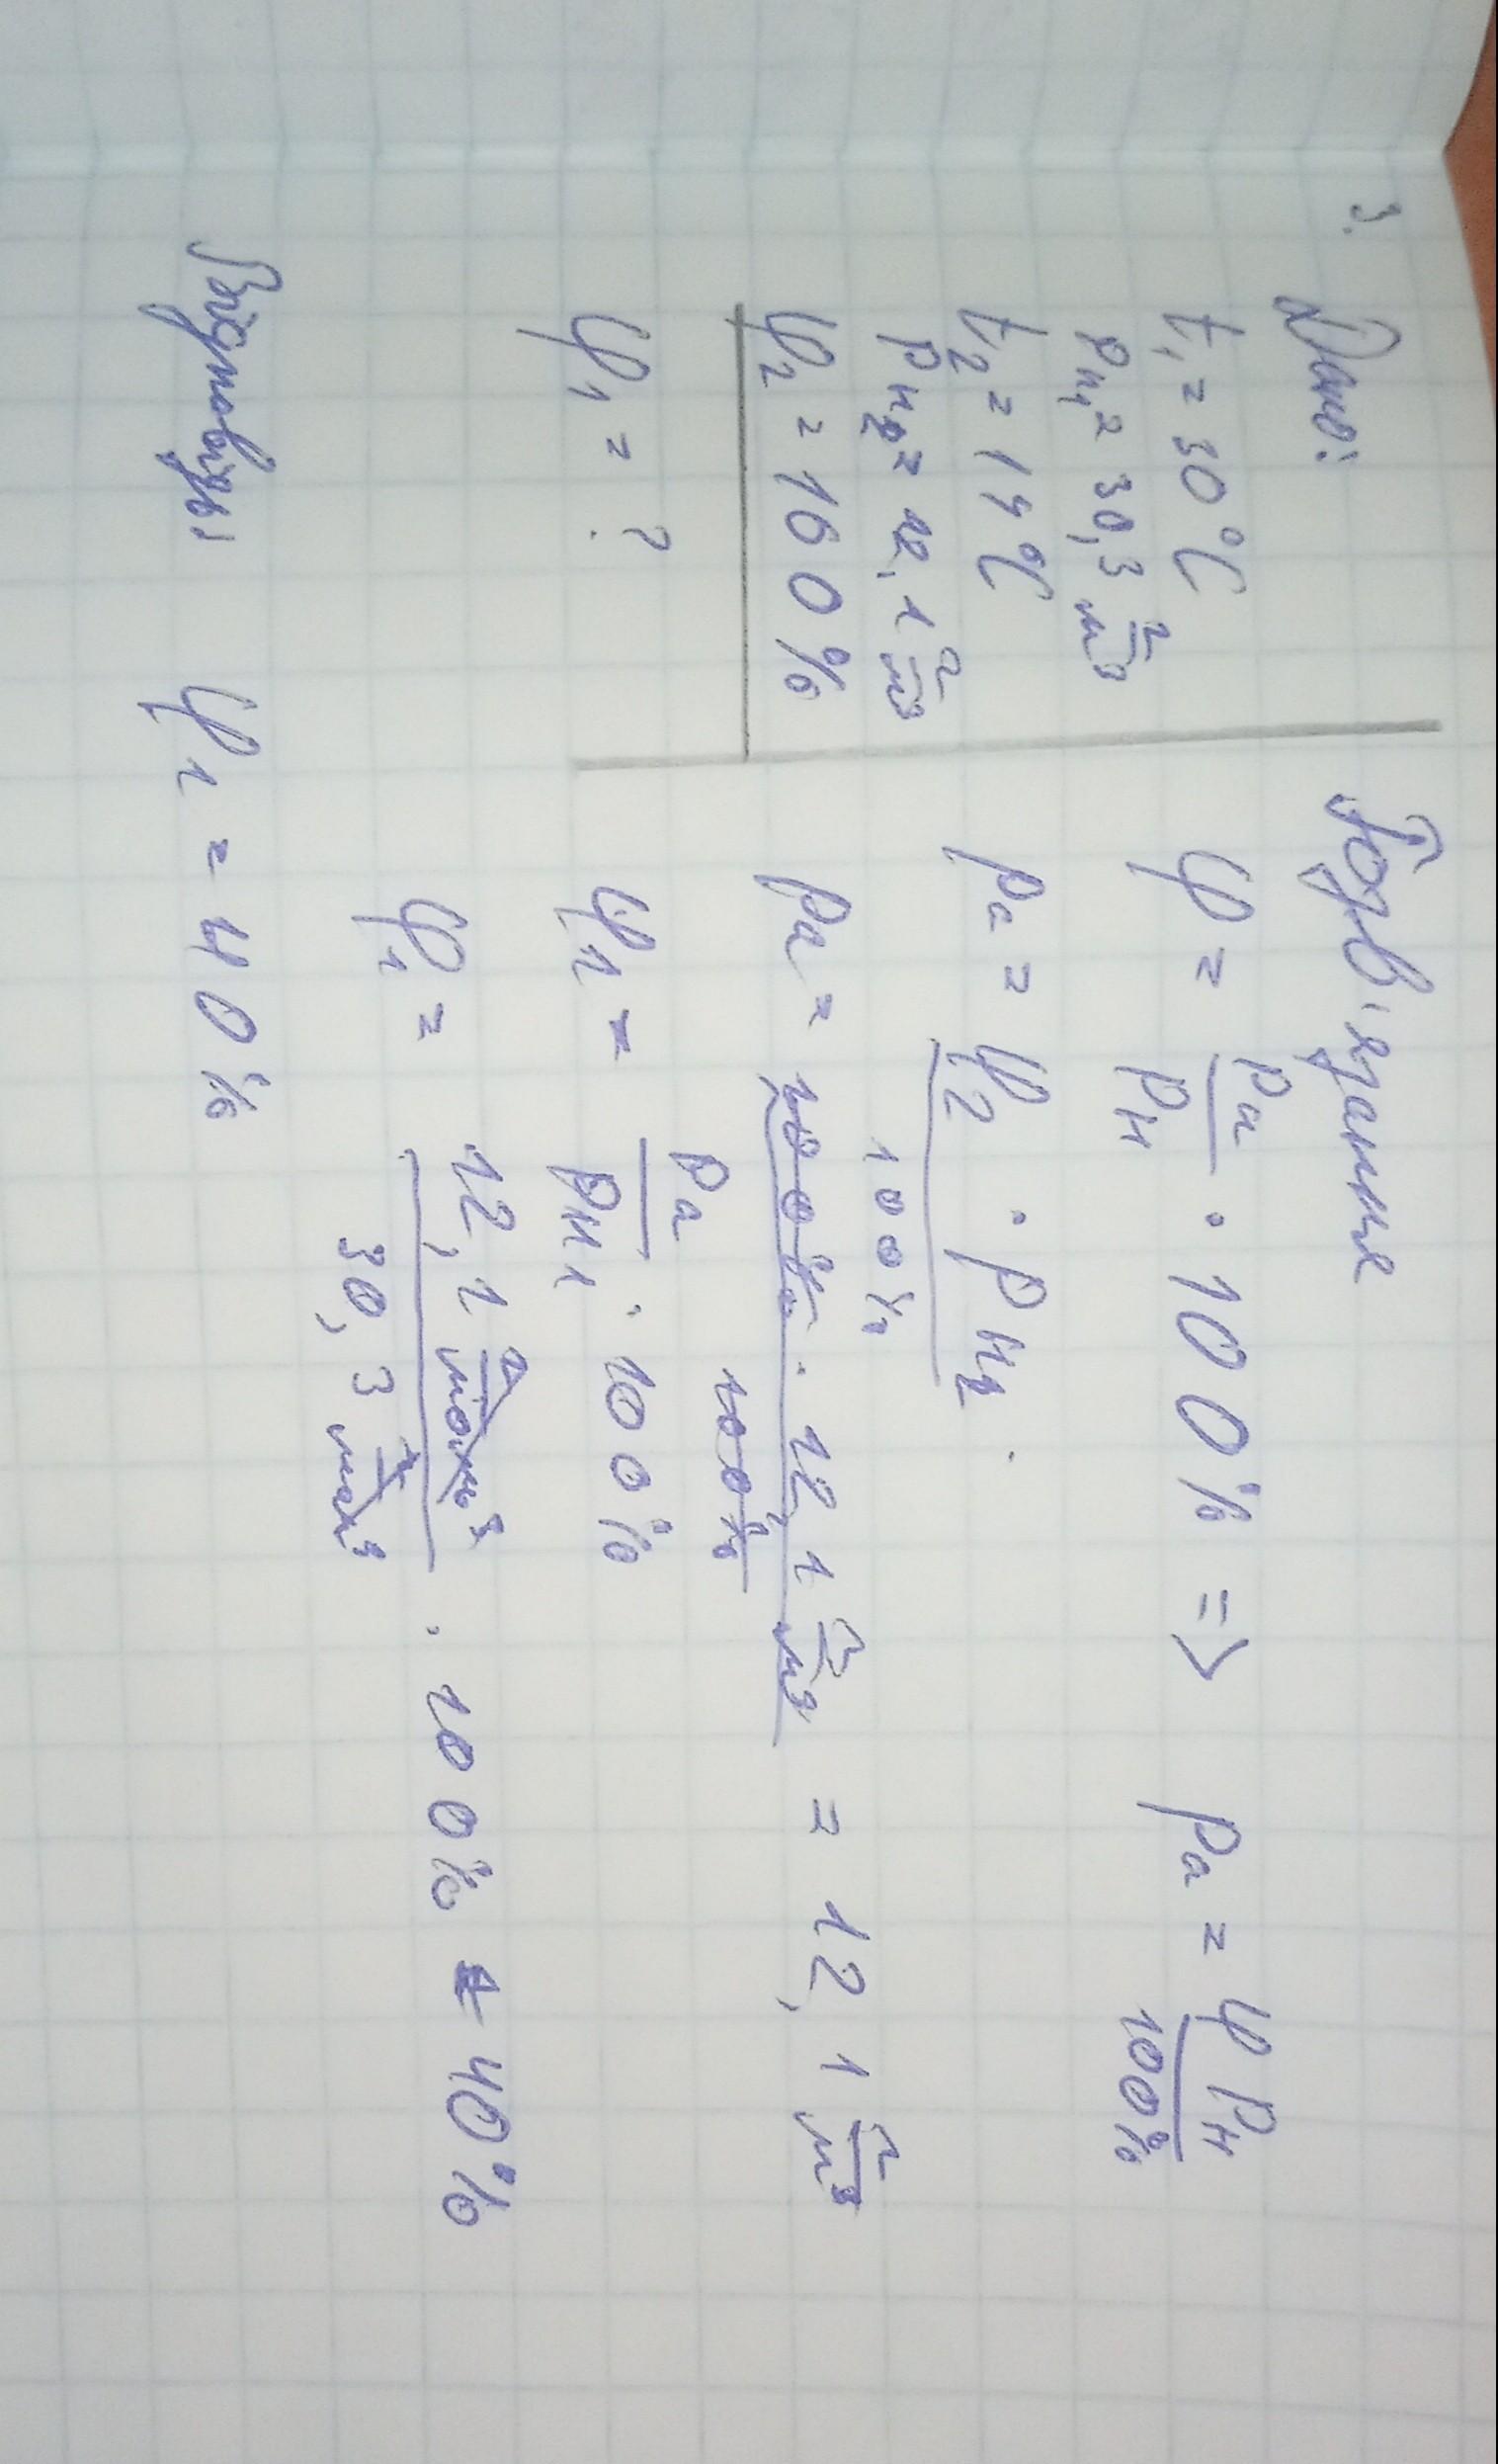 3.
Дано:
t₁ = 30°C
ρн₁ = 30,3 г/м³
t₂ = 14°C
ρн₂ = 12,1 г/м³
φ₂ = 160%
φ₁ = ?
Розв'язання
φ = ρа/ρн · 100% => ρа = φ ρн/100%
ρа = φ₂ · ρн₂/100%
ρа = 100% · 12,1 г/м³/100% = 12,1 г/м³
φ₁ = ρа/ρн₁ · 100%
φ₁ = 12,1/30,3 · 100% = 40%
Відповідь: φ₁ = 40%